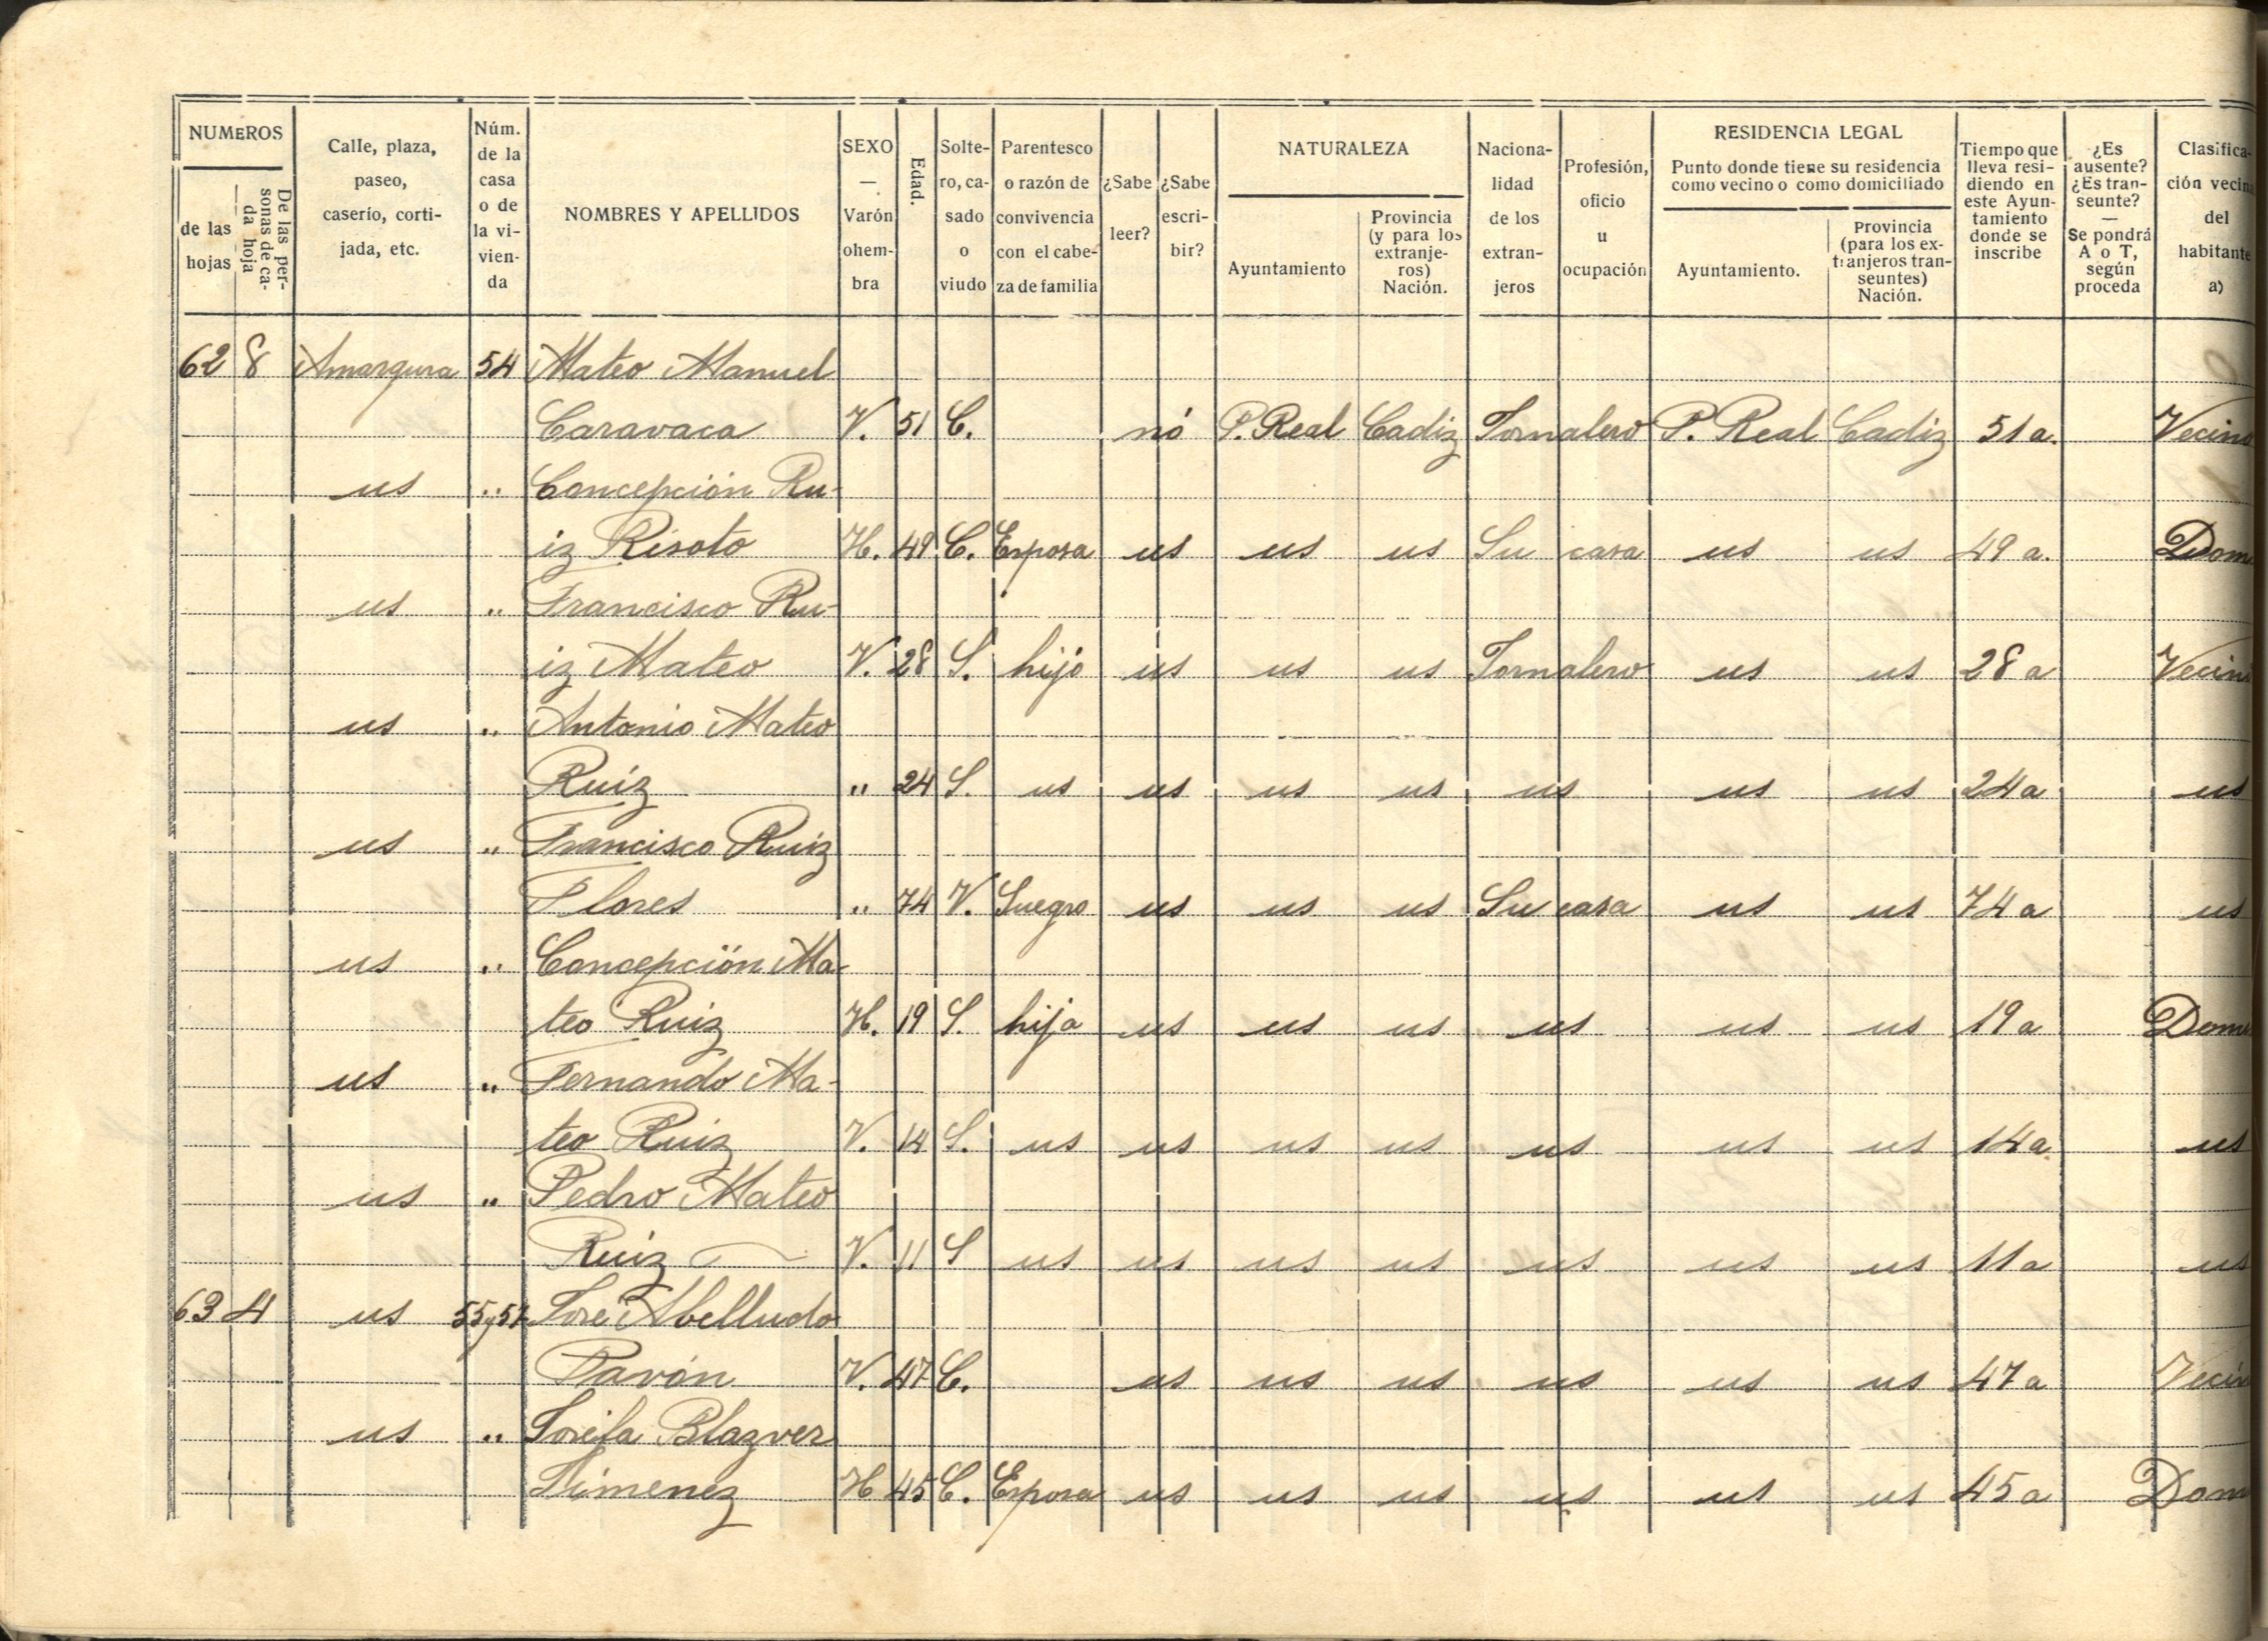 NUMEROS
de las hojas
De las personas de cada hoja
Calle, plaza, paseo, caserío, cortijada, etc.
Núm. de la casa o de la vivienda
NOMBRES Y APELLIDOS
SEXO — Varón ohembra
Edad.
Soltero, casado o viudo
Parentesco o razón de convivencia con el cabeza de familia
¿Sabe leer?
¿Sabe escribir?
NATURALEZA
Ayuntamiento
Provincia (y para los extranjeros) Nación.
Nacionalidad de los extranjeros
Profesión, oficio u ocupación
RESIDENCIA LEGAL
Punto donde tiene su residencia como vecino o como domiciliado
Ayuntamiento.
Provincia (para los extranjeros transeuntes) Nación.
Tiempo que lleva residiendo en este Ayuntamiento donde se inscribe
¿Es ausente? ¿Es transeunte? — Se pondrá A o T, según proceda
Clasificación vecinal del habitante a)
62 8 Amargura 54 Mateo Manuel
Caravaca V. 51 C. nó P. Real Cadiz Jornalero P. Real Cadiz 51 a. Vecino
us " Concepción Ru-
iz Risoto H. 49 C. Esposa us us us Su casa us us 49 a. Dom
us " Francisco Ru-
iz Mateo V. 28 S. hijo us us us Jornalero us us 28 a Vecin
us " Antonio Mateo
Ruiz " 24 S. us us us us us us us 24 a us
us " Francisco Ruiz
Flores " 74 V. Suegro us us us Su casa us us 74 a us
us " Concepción Ma-
teo Ruiz H. 19 S. hija us us us us us us 19 a Dom
us " Fernando Ma-
teo Ruiz V. 14 S. us us us us us us us 14 a. us
us " Pedro Mateo
Ruiz V. 11 S us us us us us us us 11 a us
63 4 us 55 y 57 José Abelludo
Pavón V. 47 C. us us us us us us 47 a Vecin
us " Josefa Blazver
Jimenez H 45 C. Esposa us us us us us us 45 a Dom